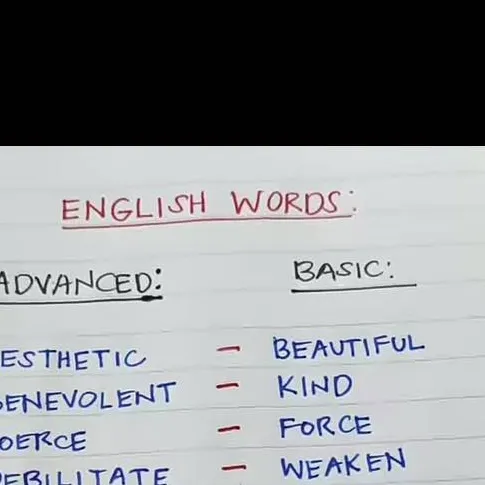 ENGLISH WORDS:
ADVANCED: BASIC:
ESTHETIC - BEAUTIFUL
BENEVOLENT - KIND
OERCE - FORCE
EBILITATE - WEAKEN